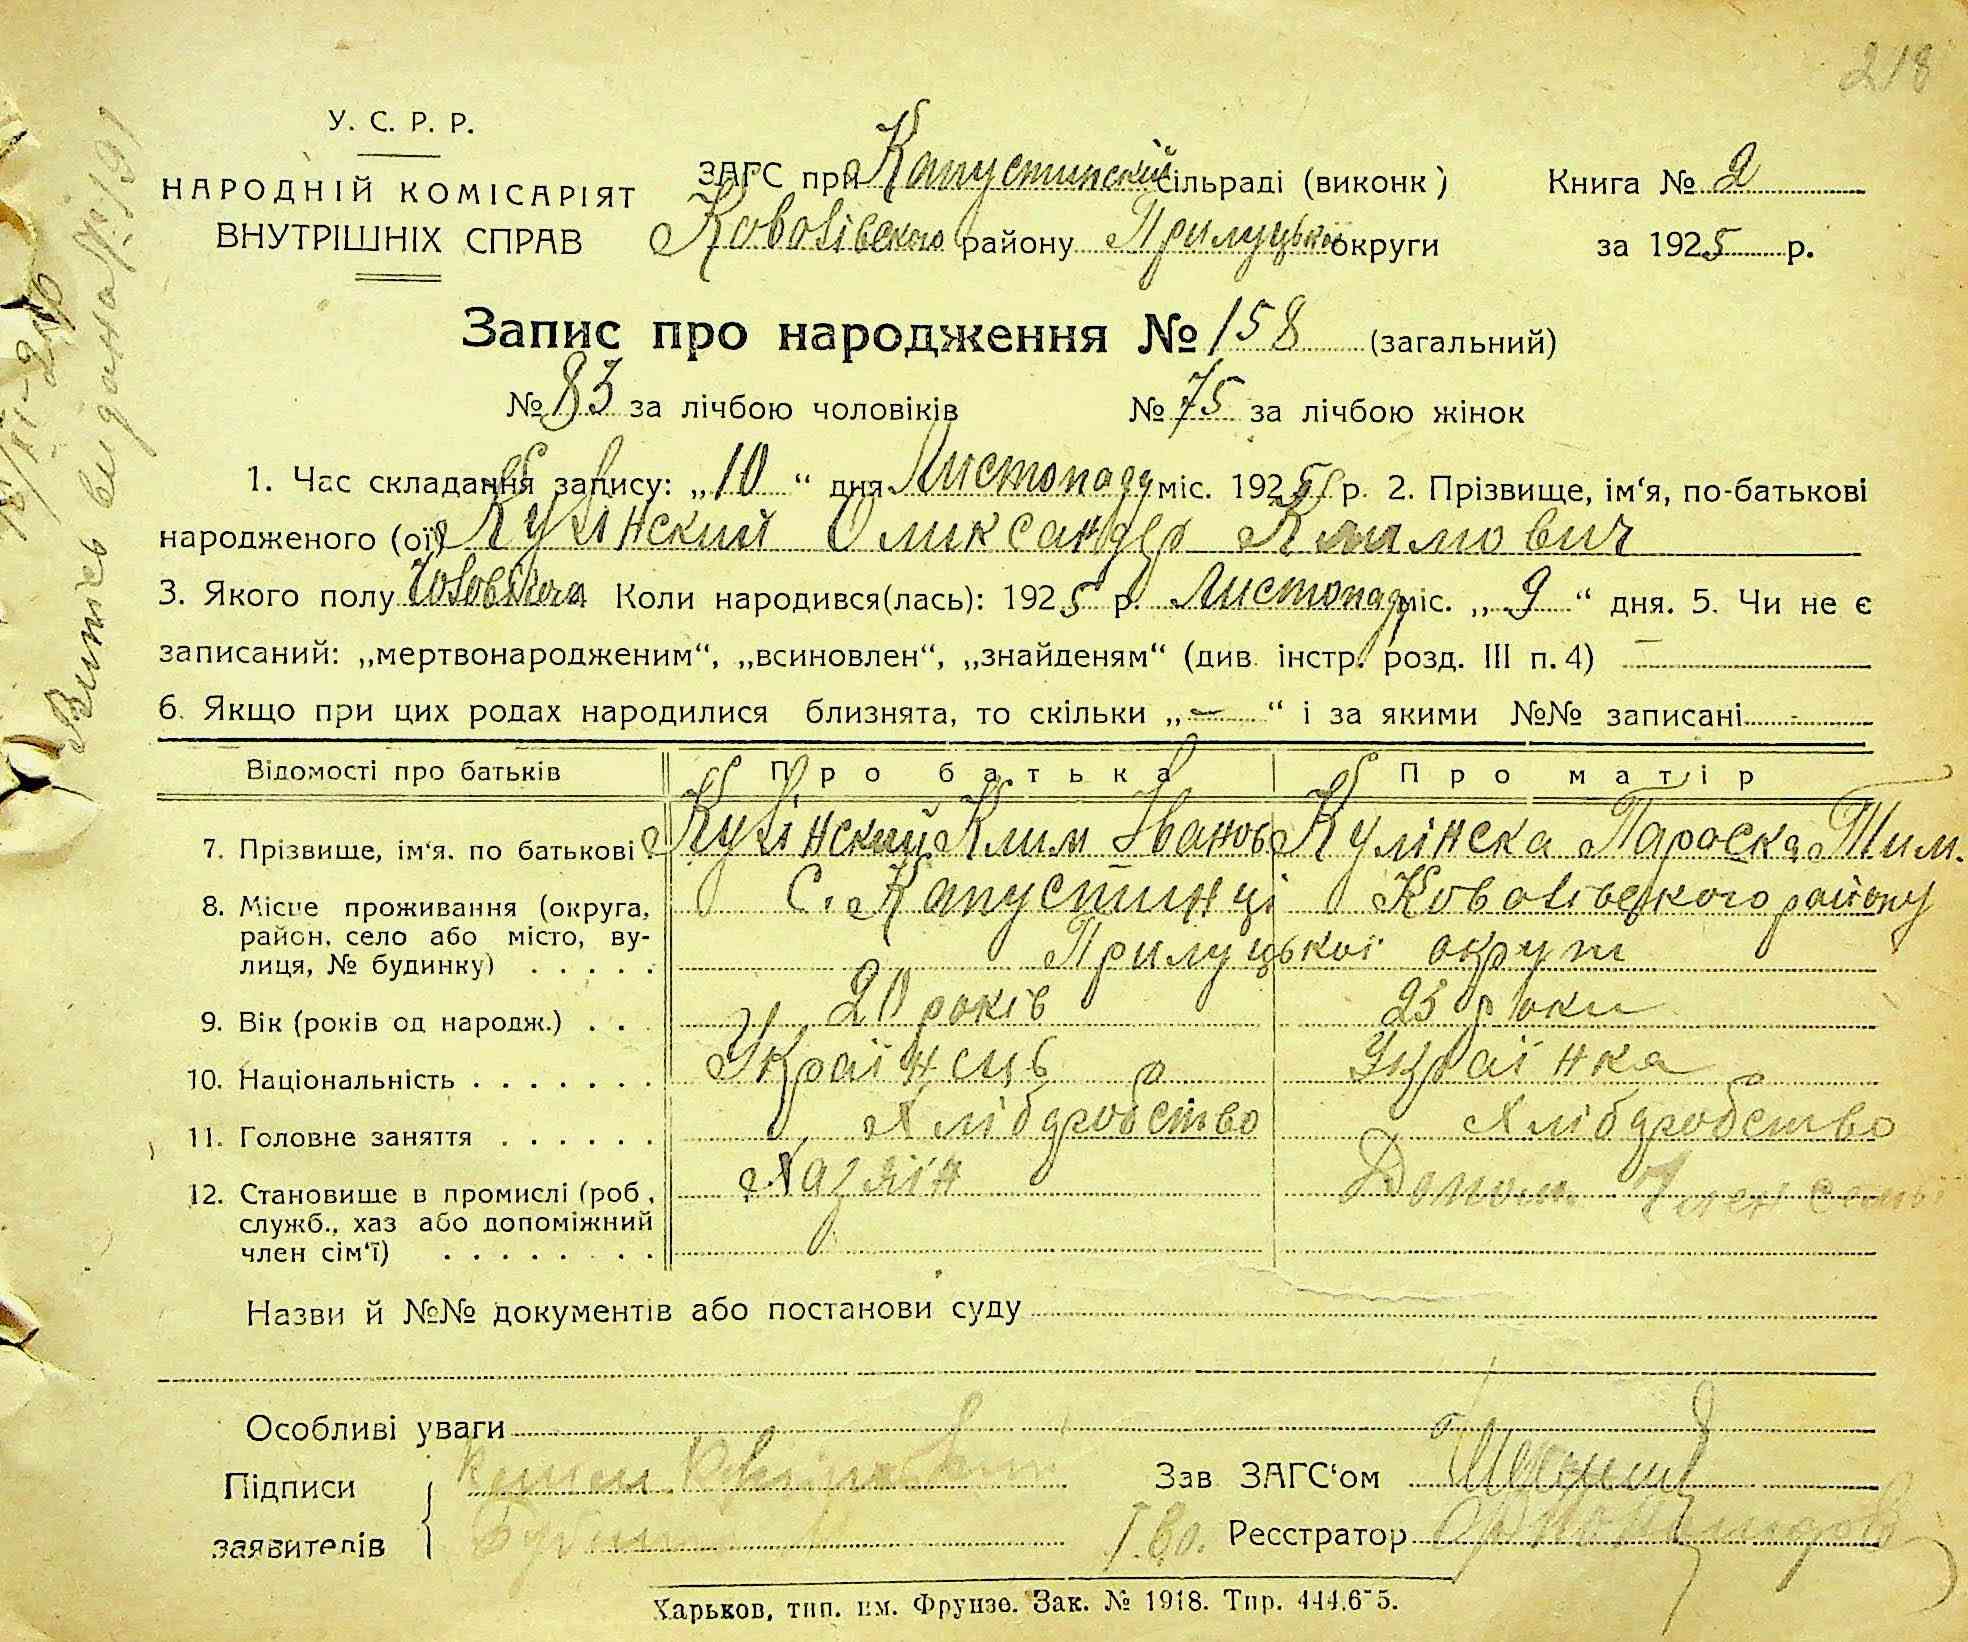 218
У. С. Р. Р.
НАРОДНІЙ КОМІСАРІЯТ
ВНУТРІШНІХ СПРАВ
ЗАГС при Капустинский сільраді (виконк)
Ковалівского району Прилуцької округи
Книга № 2
за 1925 р.
Запис про народження № 158 (загальний)
№ 83 за лічбою чоловіків № 75 за лічбою жінок
1. Час складання запису: „10“ дня Листопаду міс. 1925 р. 2. Прізвище, ім‘я, по-батькові
народженого (ої) Кулінский Олександер Климович
3. Якого полу Коли народився(лась): 1925 р. Листопаду міс. „9“ дня. 5. Чи не є
записаний: „мертвонародженим“, „всиновлен“, „знайденям“ (див. інстр. розд. III п. 4) —
6. Якщо при цих родах народилися близнята, то скільки „—“ і за якими №№ записані -
Відомості про батьків Про батька Про матір
7. Прізвище, ім‘я. по батькові Кулінский Клим Іванов Кулінска Параска Тим.
8. Місце проживання (округа, район, село або місто, ву- лиця, № будинку) . . . . . С. Капустинці Ковалівского району
Прилуцької округи
9. Вік (років од народж.) . . 20 років 23 роки
10. Національність . . . . . . . Українець Українка
11. Головне заняття . . . . . . Хліборобство Хліборобство
12. Становище в промислі (роб., служб., хаз або допоміжний член сім‘ї) . . . . . . . . Хазяїн Допом. Член
Назви й №№ документів або постанови суду
Особливі уваги
Підписи
заявителів
Зав ЗАГС‘ом
Т.во. Реєстратор
Харьков, тип. им. Фрунзе. Зак. № 1918. Тир. 444.675.
Витяг видано № 191